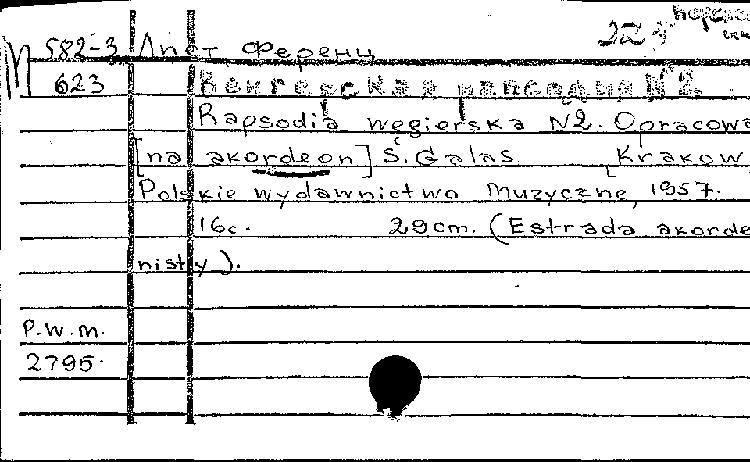 М 582-3 Лист Ференц
623 Венгерская рапсодия N2.
Rapsodia węgierska N2. Opracowa
[na akordeon] Ś. Galas. [Krakow
Polskie wydawnictwo muzyczne, 1957.
16с. 29cm. (Estrada akorde
nisty).
P.W.M.
2795.